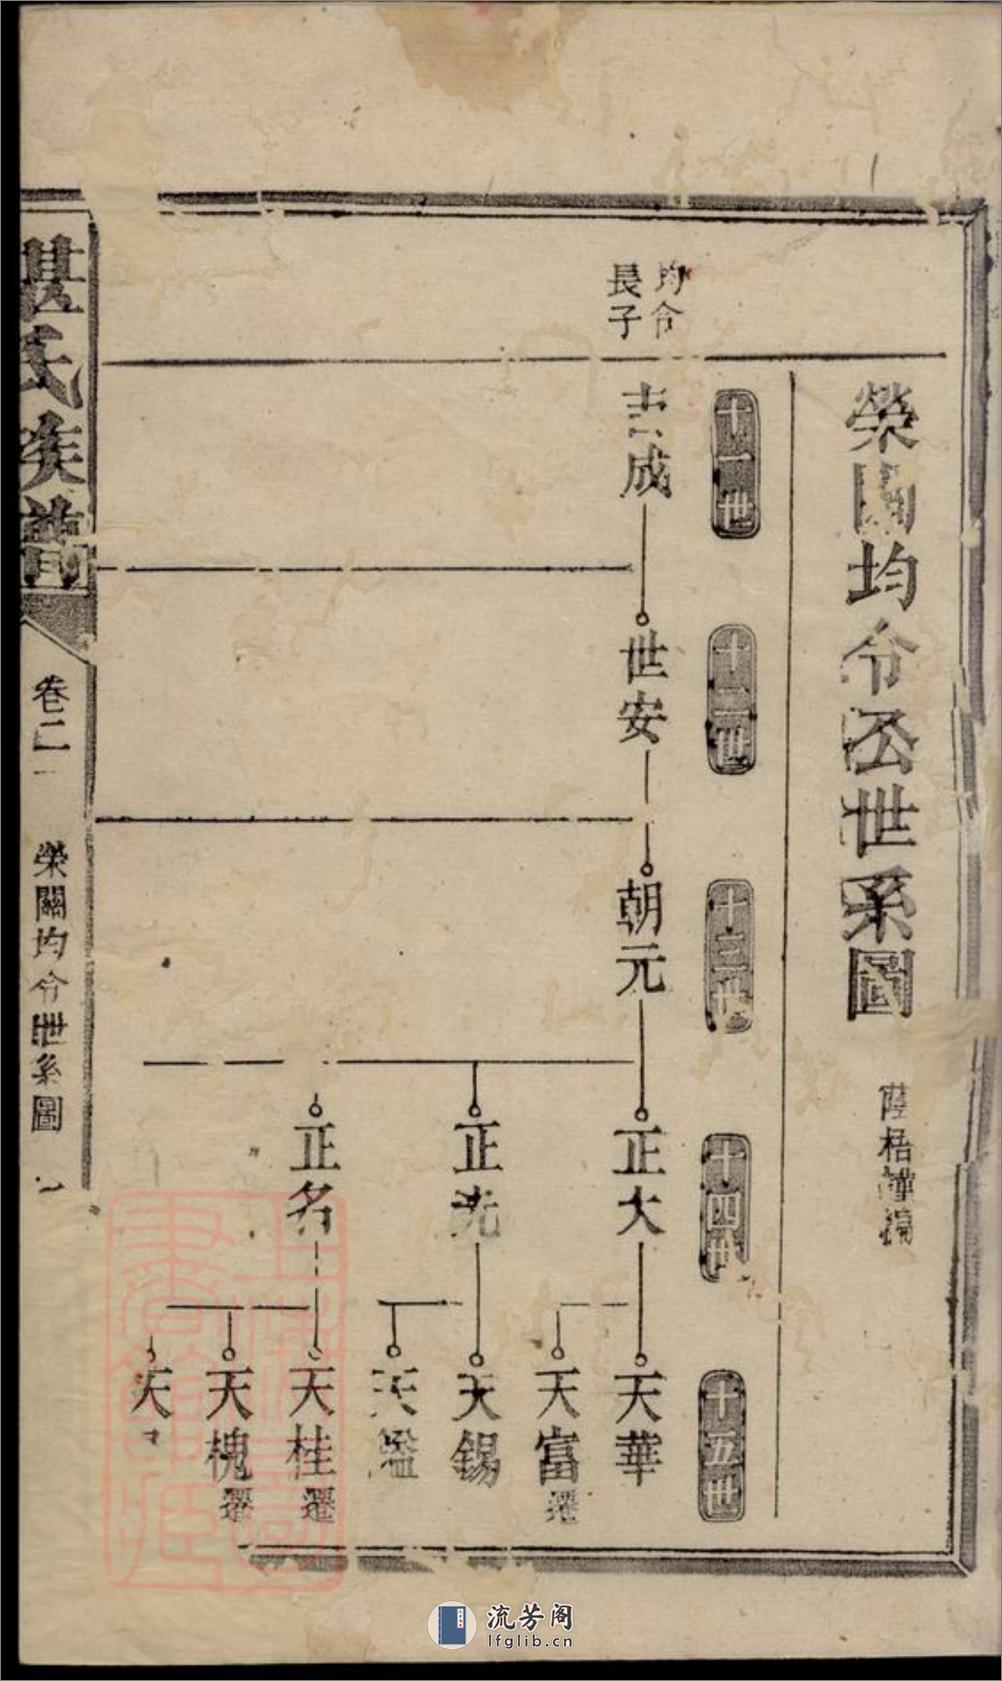 榮關均令公世系圖
十一世
十二世
十三世
十四世
十五世
均令
長子
成
世安
朝元
正大
正先
正名
天華
天富遷
天錫
天鑑
天桂遷
天槐遷
天
氏族譜
卷二
榮關均令世系圖
流芳阁
lfglib.cn